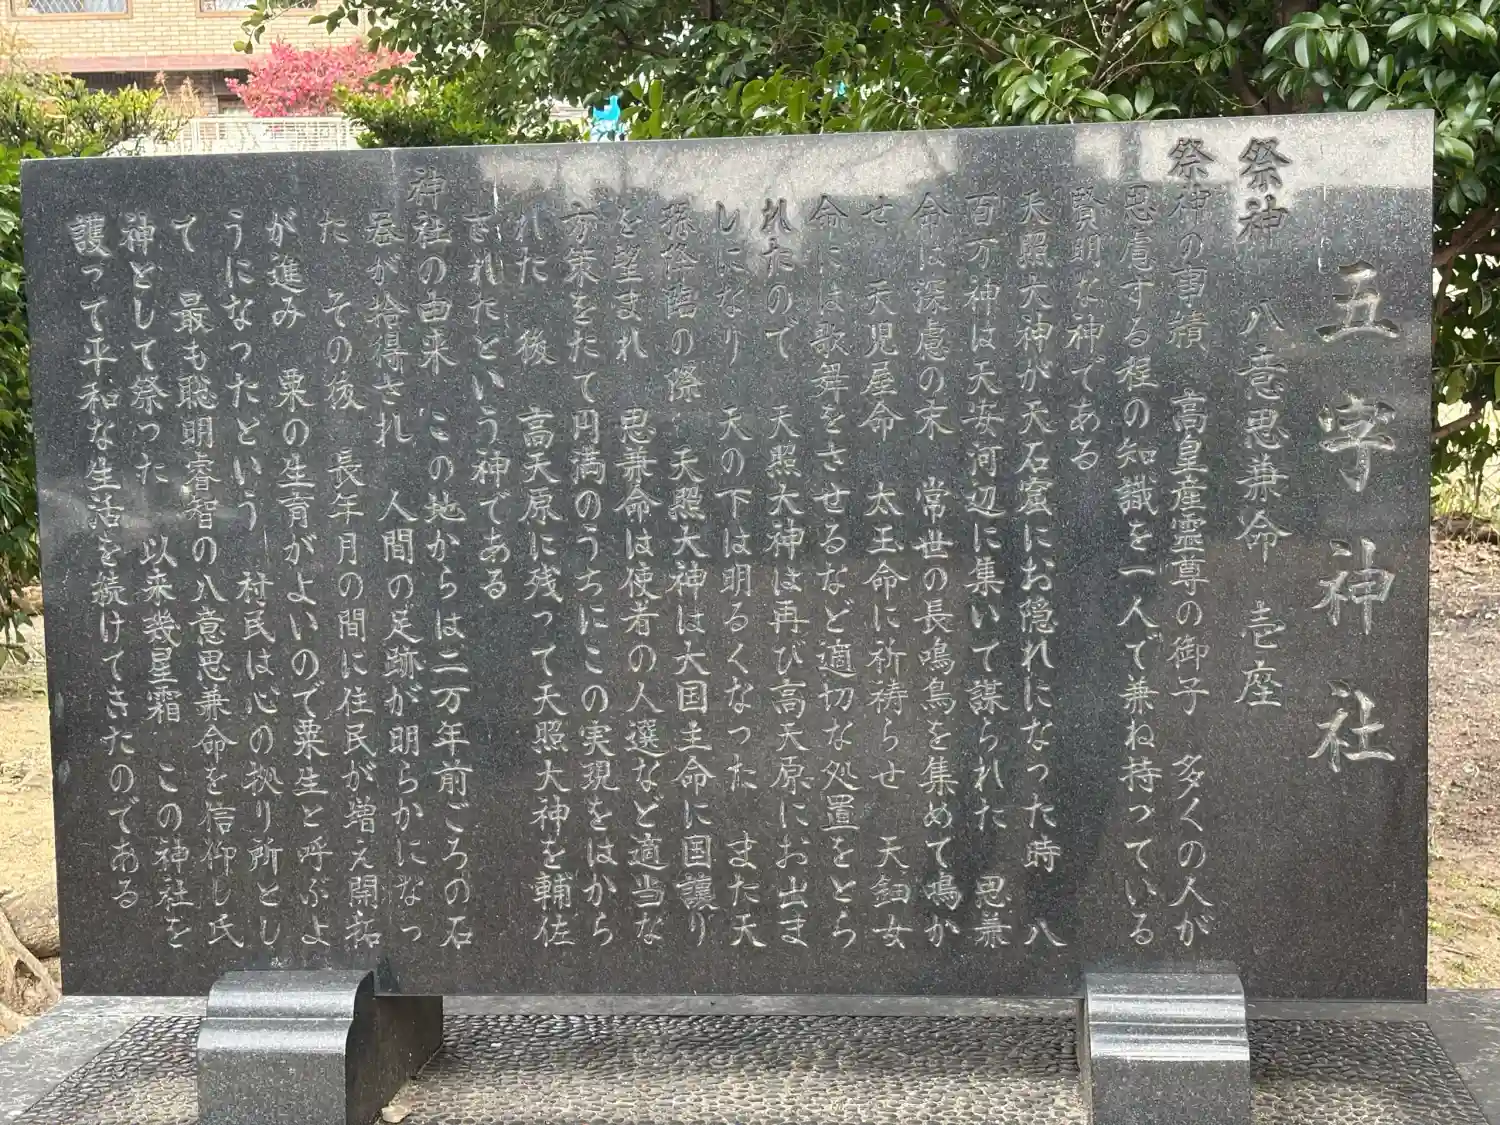 五字神社
祭神 八意思兼命 壱座
祭神の事績 高皇産霊尊の御子 多くの人が
思慮する程の知識を一人で兼ね持っている
賢明な神である
天照大神が天石窟にお隠れになった時 八
百万神は天安河辺に集いて謀られた 思兼
命は深慮の末 常世の長鳴鳥を集めて鳴か
せ 天児屋命 太玉命に祈祷らせ 天鈿女
命には歌舞をさせるなど適切な処置をとら
れたので 天照大神は再び高天原にお出ま
しになり 天の下は明るくなった また天
孫降臨の際 天照大神は大国主命に国譲り
を望まれ 思兼命は使者の人選など適当な
方策をたて円満のうちにこの実現をはから
れた 後 高天原に残って天照大神を輔佐
されたという神である
神社の由来 この地からは二万年前ごろの石
器が拾得され 人間の足跡が明らかになっ
た その後 長年月の間に住民が増え開拓
が進み 粟の生育がよいので粟生と呼ぶよ
うになったという 村民は心の拠り所とし
て 最も聡明睿智の八意思兼命を信仰し氏
神として祭った 以来幾星霜 この神社を
護って平和な生活を続けてきたのである